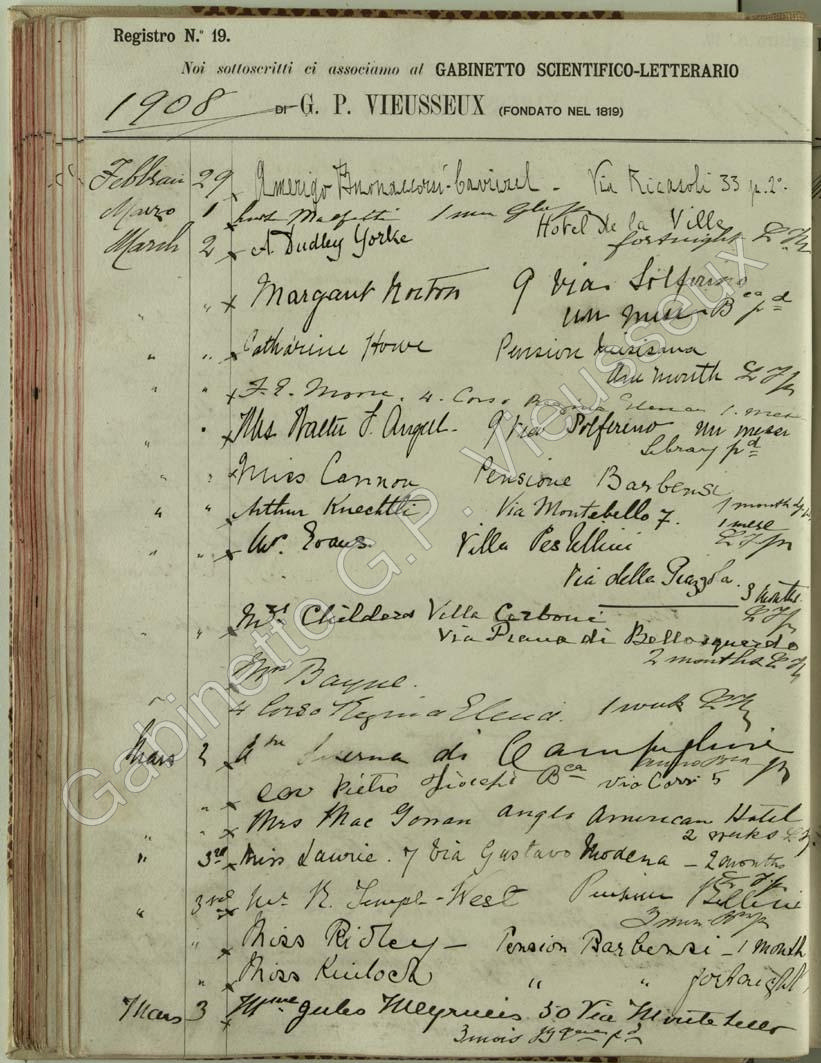 Registro N.º 19.
Noi sottoscritti ci associamo al GABINETTO SCIENTIFICO-LETTERARIO
1908 DI G. P. VIEUSSEUX (FONDATO NEL 1819)
29 Amerigo Buonaccorsi - Via Ricasoli 33 p. 2º
Marzo 1
Hotel de la Ville
March 2 A Dudley Yorke fortnight
Margaret Norton 9 Via Solferino
un mese
Catharine Howe Pension
One month
F. E. Moore. 4. Corso Regina Elena 1. mese
Mrs Walter F. Angell - 9 Via Solferino un messe
Library pd
Miss Cannon Pensione Barbensi
1 month
Arthur Knechtli Via Montebello 7. 1 mese
Mr. Evans. Villa
Via della Piazzola. 3 months
Mrs Childers Villa Carboni
Via Piana di Bellosguardo
2 months
Mrs Bayne.
4 Corso Regina Elena. 1 week
Mars 2 di
cav Pietro Via Corsi 5
Mrs Mac Gowan Anglo American Hotel
2 weeks
3rd Miss Laurie. 7 Via Gustavo Modena - 2 months
3rd Mr. R. Temple-West Pension Bellini
Miss Ridley - Pension Barbensi - 1 month
Miss Kinloch " " fortnight
Mars 3 Mme Jules Meyrueis 50 Via Montebello
3 mois
Gabinetto G.P. Vieusseux